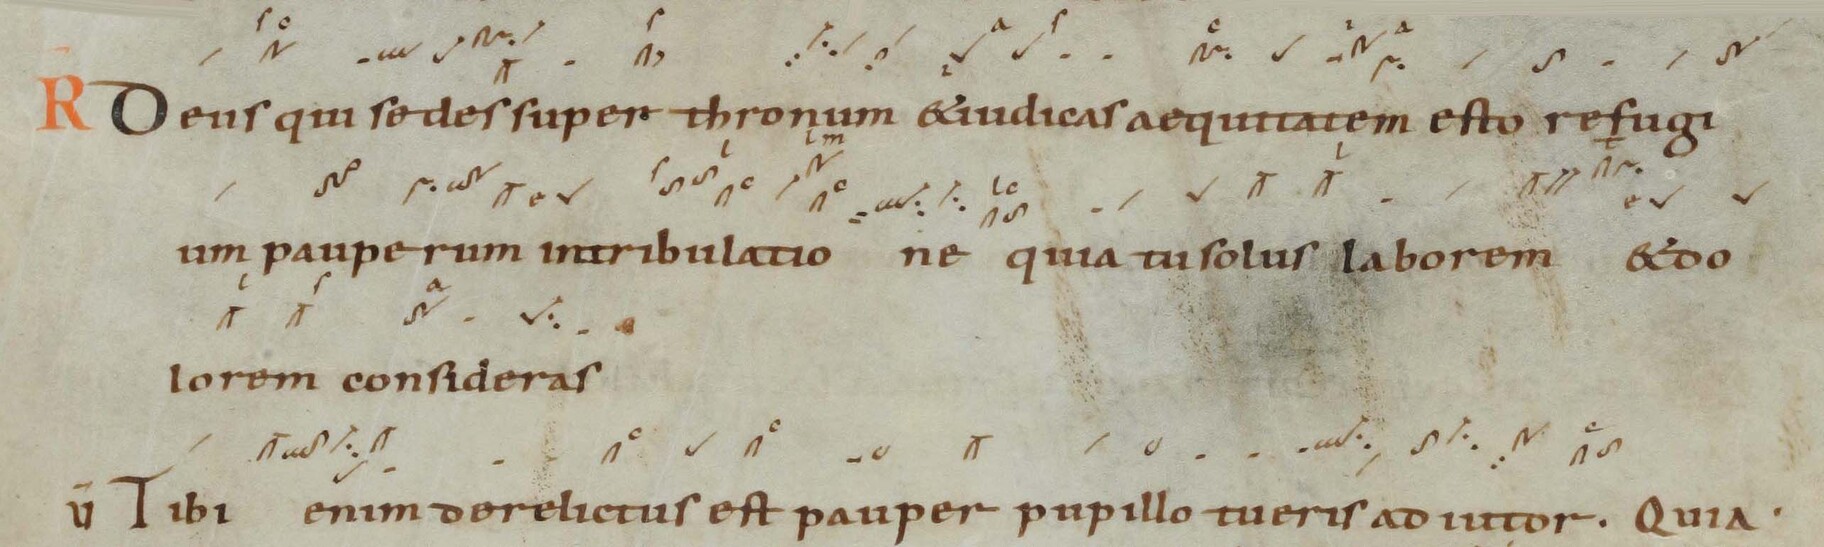 R Deus qui sedes super thronum &iudicas aequitatem esto refugi
um pauperum intribulatio ne quia tu solus laborem &do
lorem consideras
V Tibi enim derelictus est pauper pupillo tueris ad iutor. Quia.